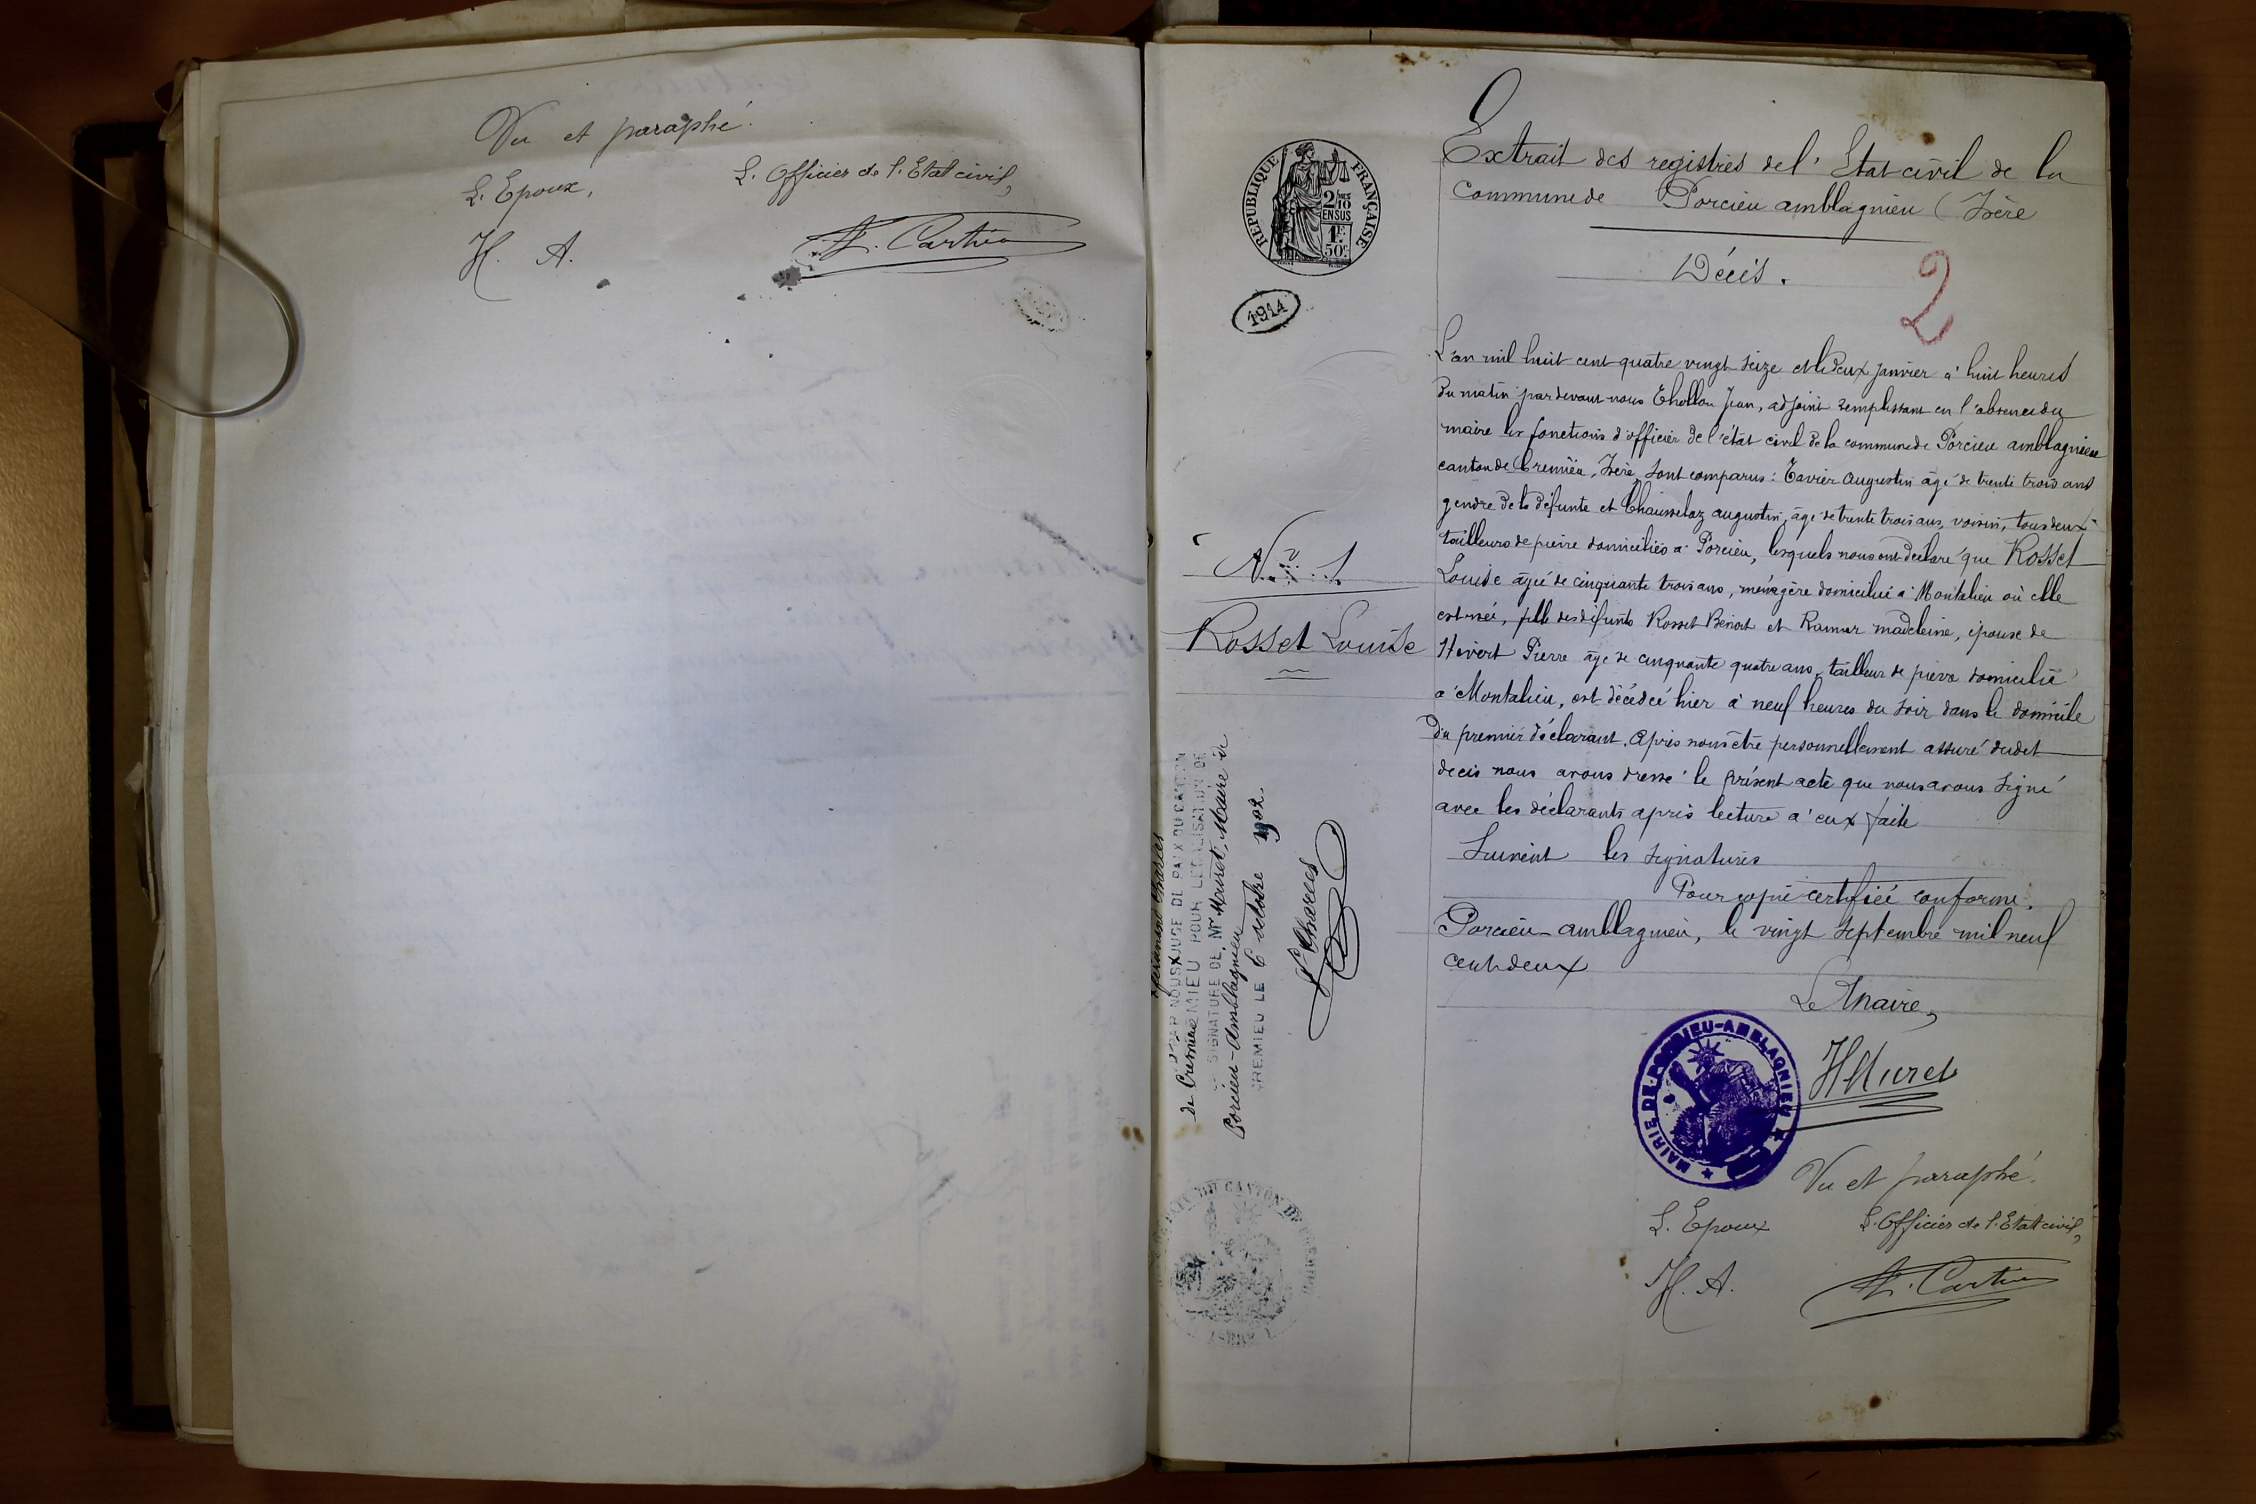 Vu et paraphé.
L. Epoux,
L. Officier de l'Etat civil,
H. A.
H. Cartier
RÉPUBLIQUE FRANÇAISE
2/10
EN SUS
1F
50c
1914
Extrait des registres de l'Etat civil de la
commune de Porcieu amblagnieu (Isère
Décès.
2
L'an mil huit cent quatre vingt seize et le deux janvier à huit heures
du matin par devant nous Chollou Jean, adjoint remplissant en l'absence du
maire les fonctions d'officier de l'état civil de la commune de Porcieu amblagnieu
canton de Crémieu, Isère, sont comparus : Tavier Augustin âgé de trente trois ans
gendre de la défunte et Chausselaz augustin, âgé de trente trois ans, voisin, tous deux
tailleurs de pierre domiciliés à Porcieu, lesquels nous ont déclaré que Rosset
Louise âgée de cinquante trois ans, ménagère domiciliée à Montalieu où elle
est née, fille des défunts Rosset Benoit et Ramer madeleine, épouse de
Hivert Pierre âgé de cinquante quatre ans, tailleur de pierre domicilié
à Montalieu, est décédée hier à neuf heures du soir dans le domicile
du premier déclarant. Après nous être personnellement assuré dudit
décès nous avons dressé le présent acte que nous avons signé
avec les déclarants après lecture à eux faite
Suivent les signatures
Pour copie certifiée conforme.
Porcieu-amblagnieu, le vingt septembre mil neuf
cent deux
Le Maire,
HMuret
MAIRIE DE PORCIEU-AMBLAGNIEU
Vu et paraphé.
L. Epoux
L. Officier de l'Etat civil,
H. A.
H. Cartier
No 1
Rosset Louise
PAR NOUS JUGE DE PAIX DU CANTON
de Crémieu POUR LÉGALISATION DE
SIGNATURE DE Mr Muret, Maire de
Porcieu-Amblagnieu
CREMIEU LE 6 octobre 1902.
Charles
DU CANTON DE